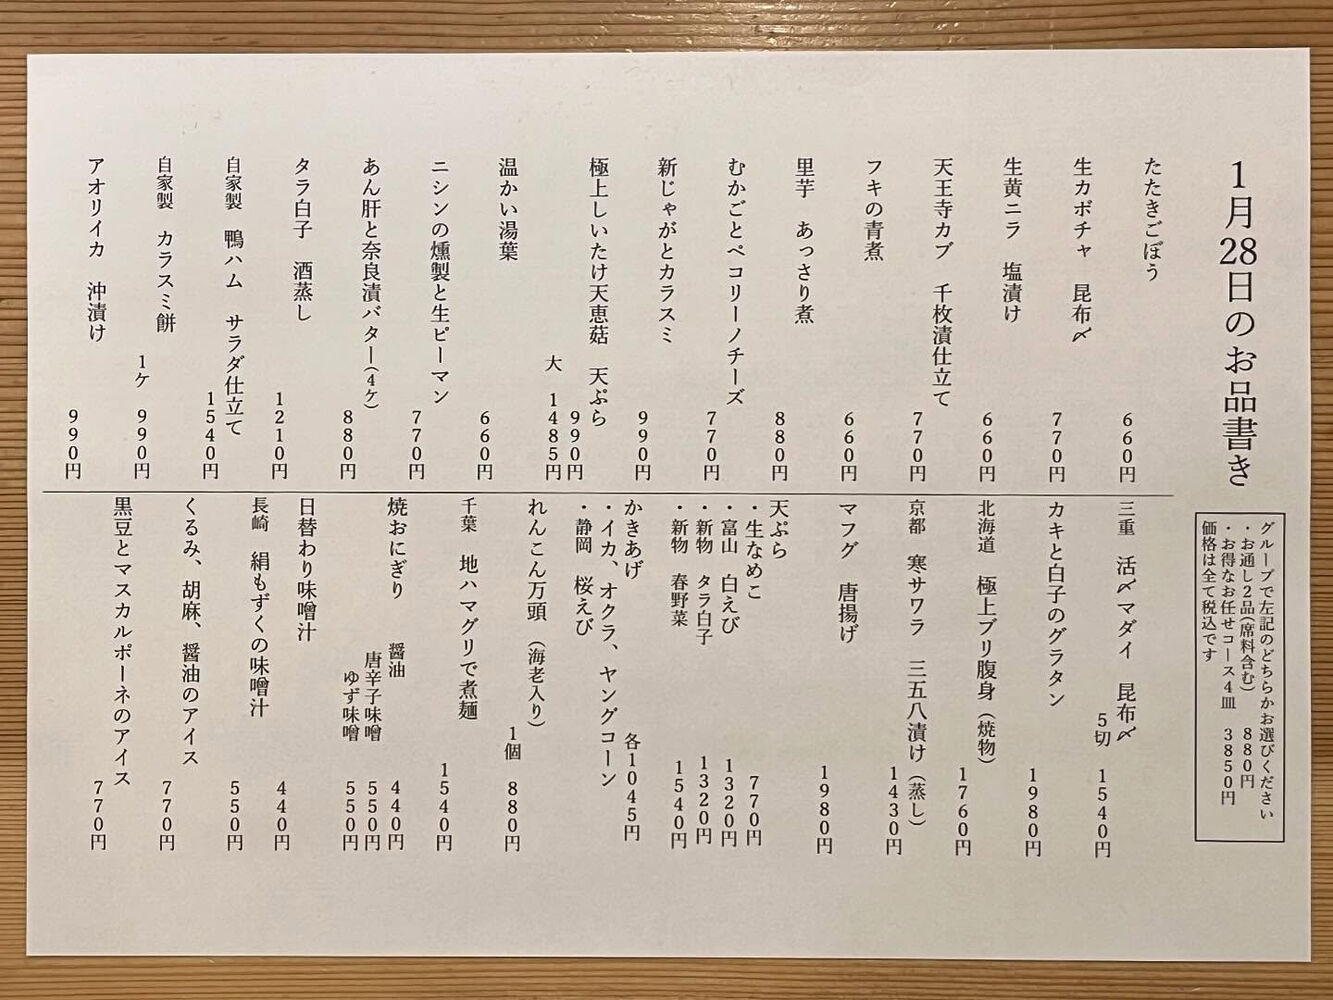 1月28日のお品書き
グループで左記のどちらかお選びください
・お通し2品(席料含む) 880円
・お得なお任せコース4皿 3850円
価格は全て税込です
たたきごぼう 660円
生カボチャ 昆布〆 770円
生黄ニラ 塩漬け 660円
天王寺カブ 千枚漬仕立て 770円
フキの青煮 660円
里芋 あっさり煮 880円
むかごとペコリーノチーズ 770円
新じゃがとカラスミ 990円
極上しいたけ天恵菇 天ぷら 990円
大 1485円
温かい湯葉 660円
ニシンの燻製と生ピーマン 770円
あん肝と奈良漬バター(4ケ) 880円
タラ白子 酒蒸し 1210円
自家製 鴨ハム サラダ仕立て 1540円
自家製 カラスミ餅 1ケ 990円
アオリイカ 沖漬け 990円
三重 活〆マダイ 昆布〆 5切 1540円
カキと白子のグラタン 1980円
北海道 極上ブリ腹身(焼物) 1760円
京都 寒サワラ 三五八漬け(蒸し) 1430円
マフグ 唐揚げ 1980円
天ぷら
・生なめこ 770円
・富山 白えび 1320円
・新物 タラ白子 1320円
・新物 春野菜 1540円
かきあげ 各1045円
・イカ、オクラ、ヤングコーン
・静岡 桜えび
れんこん万頭(海老入り) 1個 880円
千葉 地ハマグリで煮麺 1540円
焼おにぎり 醤油 440円
唐辛子味噌 550円
ゆず味噌 550円
日替わり味噌汁 440円
長崎 絹もずくの味噌汁 550円
くるみ、胡麻、醤油のアイス 770円
黒豆とマスカルポーネのアイス 770円